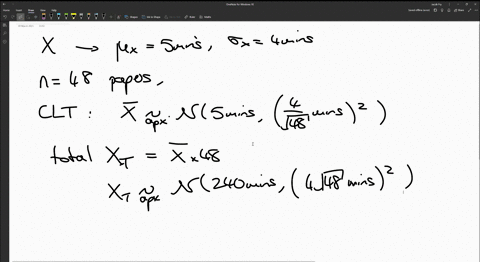 X → μx = 5mins, σx = 4mins
n = 48 papos,
CLT : X̄ ~apx. N(5mins, (4/√48 mins)²)
total X_T = X̄ × 48
X_T ~apx N(240mins, (4√48 mins)²)